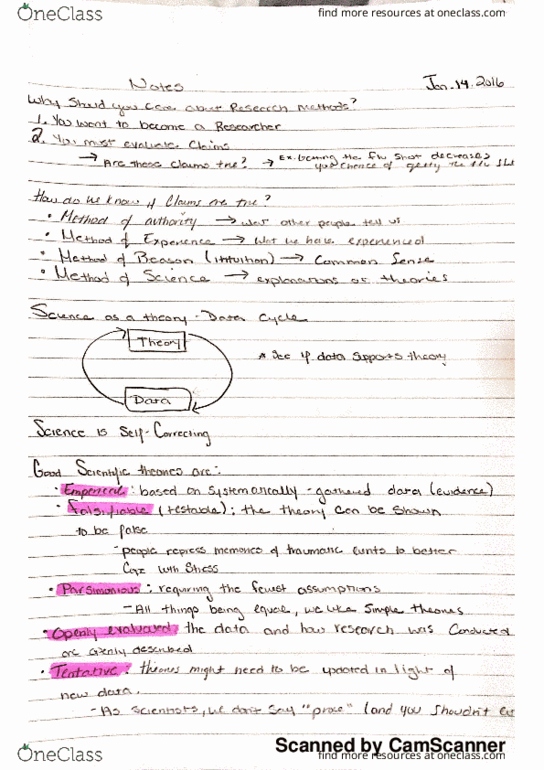 OneClass
find more resources at oneclass.com
Notes
Jan.19.2016
Why should you care about Research Methods?
1. You want to become a Researcher
2. You must evaluate Claims
→ Are these claims true? → Ex. the flu shot decreases
chance of the flu
How do we know if Claims are true?
• Method of authority → what other people tell us
• Method of Experience → what we have experienced
• Method of Reason (intuition) → Common Sense
• Method of Science → explanations or theories
Science as a theory-Data Cycle
Theory
* See if data supports theory
Data
Science is Self-Correcting
Good Scientific theories are:
• Emperical: based on systematically-gathered data (evidence)
• Falsifiable (testable); the theory can be shown
to be false
-people repress memories of traumatic events to better
with stress
• Parsimonious: requiring the fewest assumptions
-All things being equal, we like simple theories
• Openly evaluated the data and how research was conducted
are openly described
• Tentative: theories might need to be updated in light of
new data.
-As scientists, we don't say "prove" (and you shouldn't
Scanned by CamScanner
OneClass
find more resources at oneclass.com